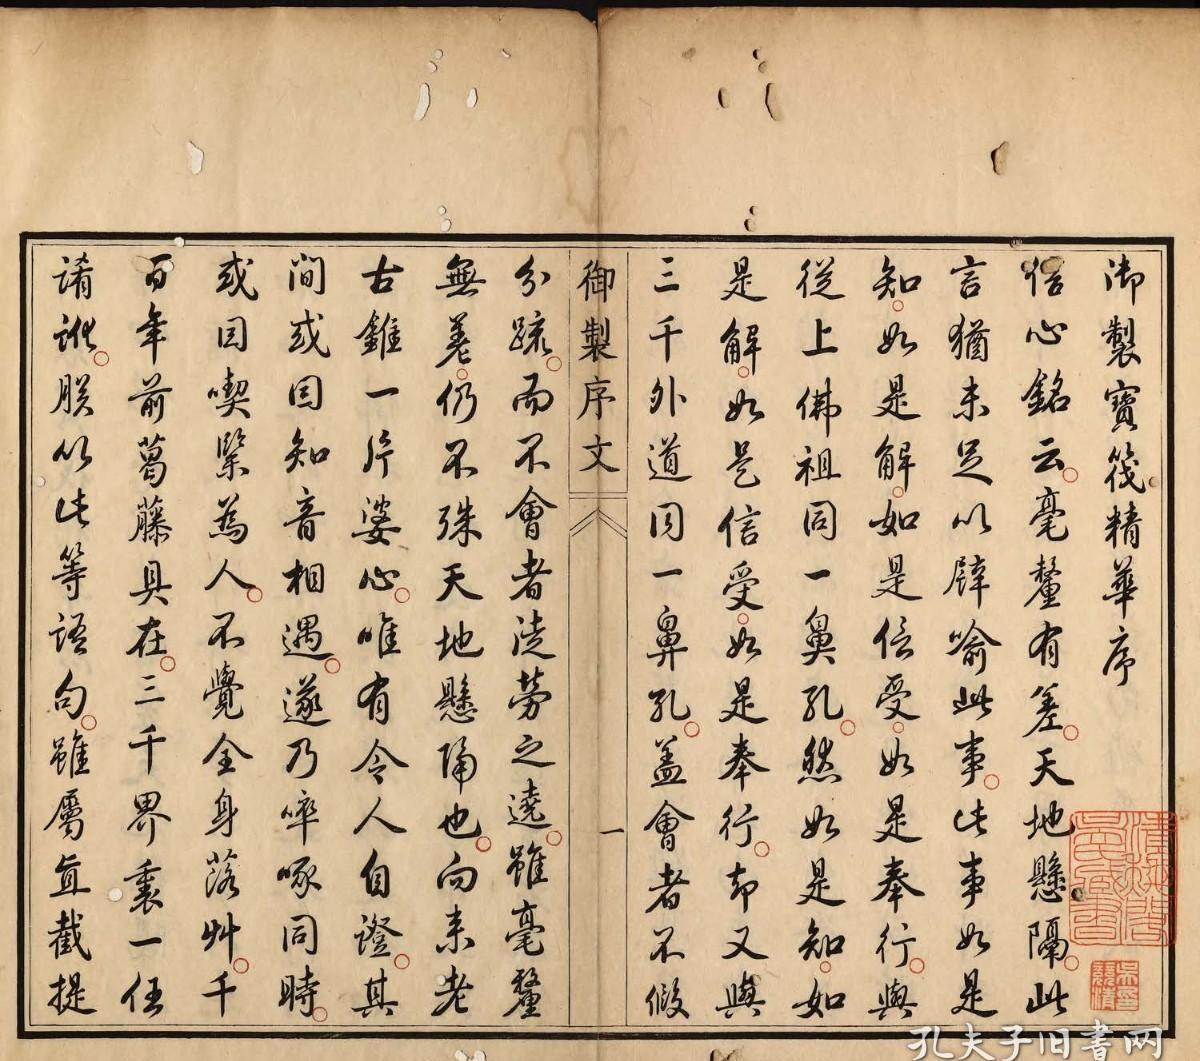 御製寶筏精華序
信心銘云毫釐有差天地懸隔此
言猶未足以譬喻此事此事如是
知如是解如是信受如是奉行與
從上佛祖同一鼻孔然如是知如
是解如是信受如是奉行却又與
三千外道同一鼻孔蓋會者不假
御製序文
一
分疏而不會者徒勞之遶雖毫釐
無差仍不殊天地懸隔也向来老
古錐一片婆心唯有令人自證其
間或因知音相遇遂乃啐啄同時
或因喫緊為人不覺全身落艸千
百年前葛藤具在三千界裏一任
誵訛朕以此等語句雖屬直截提
孔夫子旧書网